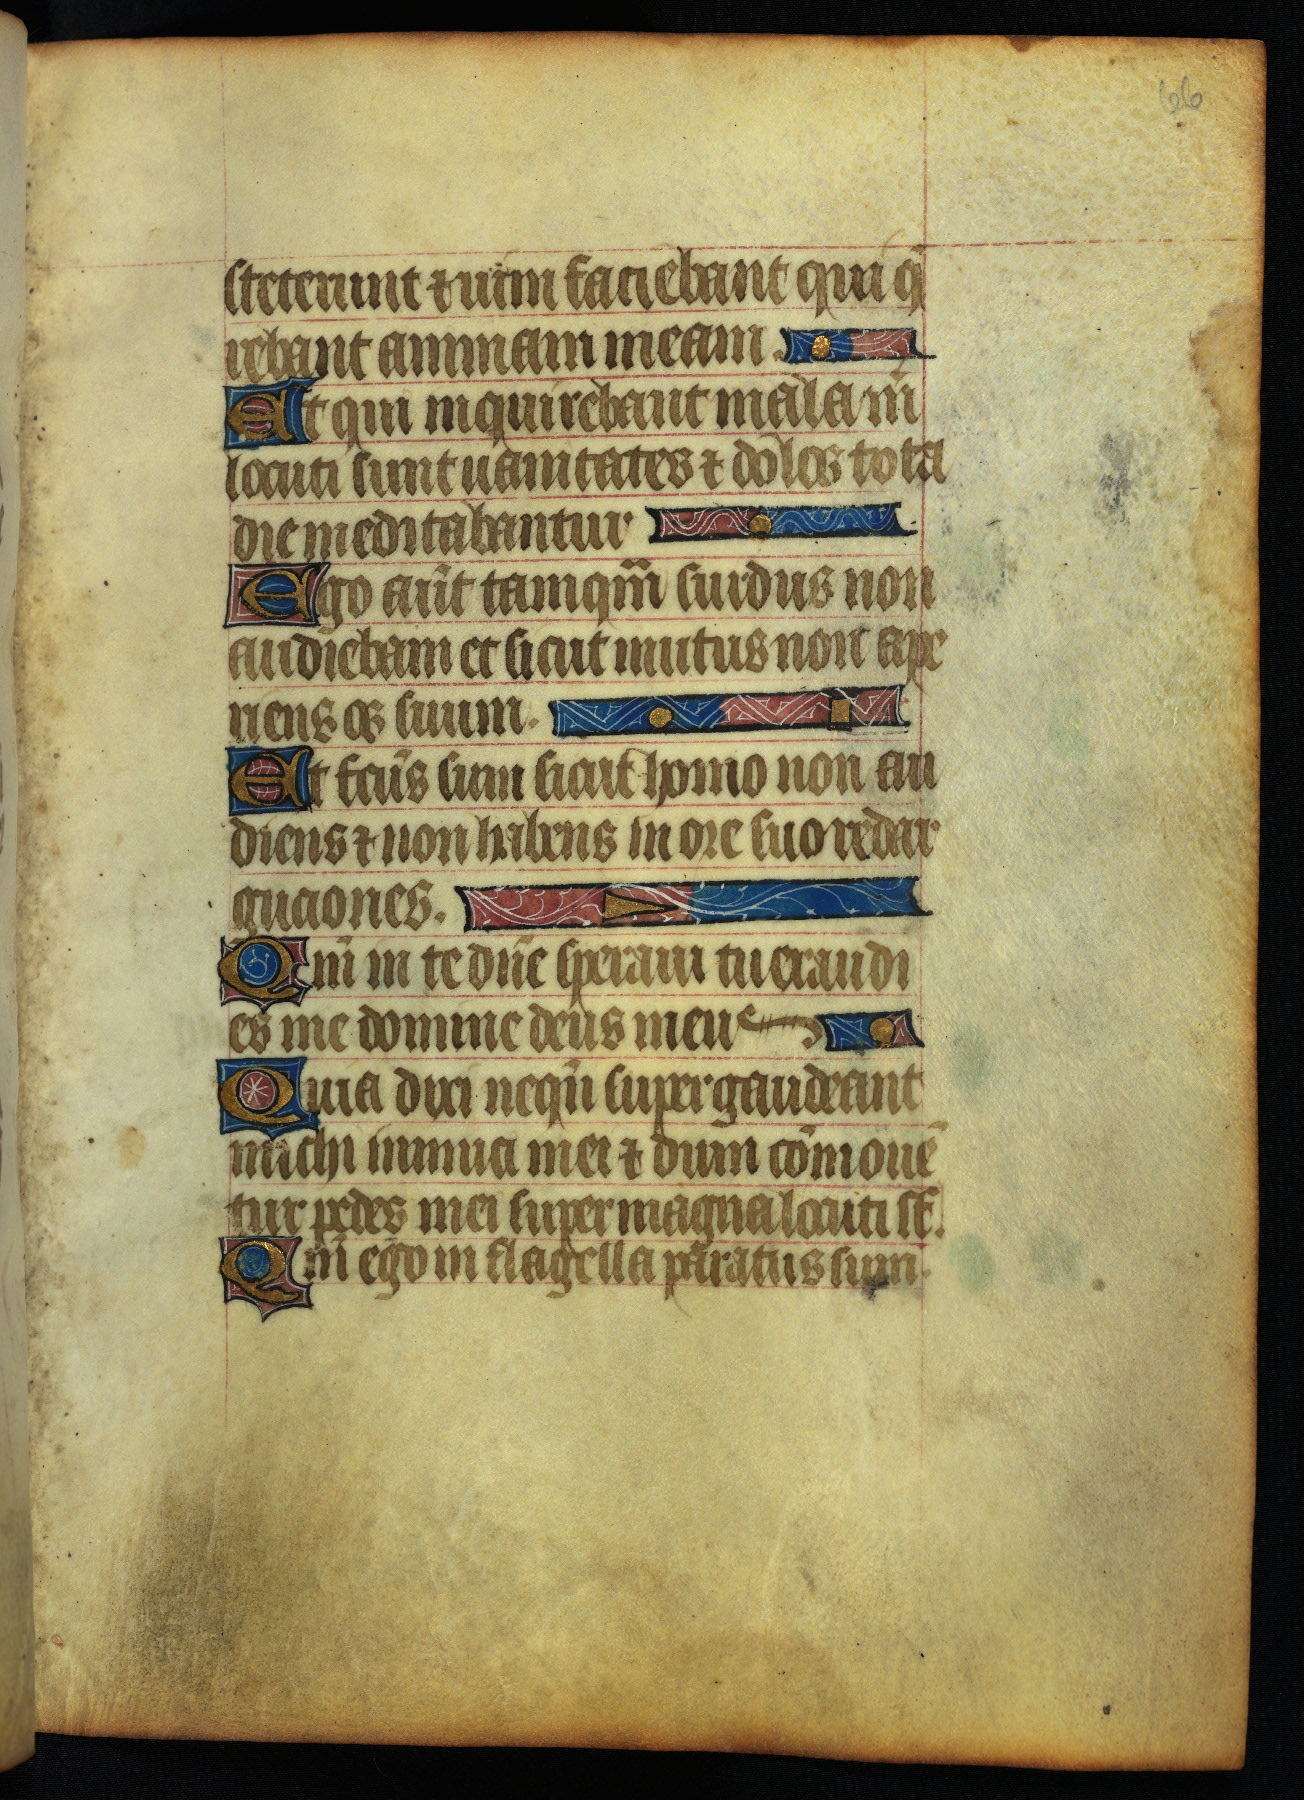 66
steterunt ⁊ uim faciebant qui q̄
rebant animam meam.
Et qui inquirebant mala m̄
locuti sunt uanitates ⁊ dolos tota
die meditabantur
Ego aut̄ tamqm̄ surdus non
audiebam et sicut mutus non ape
riens os suum.
Et fcūs sum sicut homo non au
diens ⁊ non habens in ore suo redar
guciones.
Qm̄ in te dn̄e speraui tu exaudi
es me domine deus meus
Quia dixi neqn̄ supergaudeant
michi inimici mei ⁊ dum cōmouē
tur pedes mei super magna locuti st̄.
Qm̄ ego in flagella paratus sum.